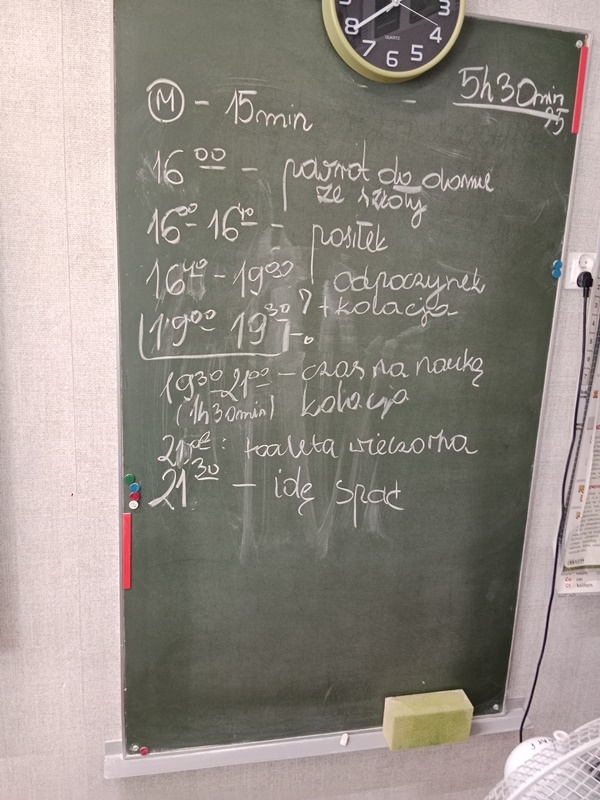 3
8 4
7 6 5
QUARTZ
5h30min
Ⓜ - 15min
16⁰⁰ - powrót do domu
ze szkoły
16⁰⁰ - 16⁴⁰ - posiłek
16⁴⁰ - 19⁰⁰ odpoczynek
19⁰⁰ 19³⁰ ? + kolacja
19³⁰ - 21⁰⁰ - czas na naukę
(1h30min) kolacja
21⁰⁰: toaleta wieczorna
21³⁰ - idę spać